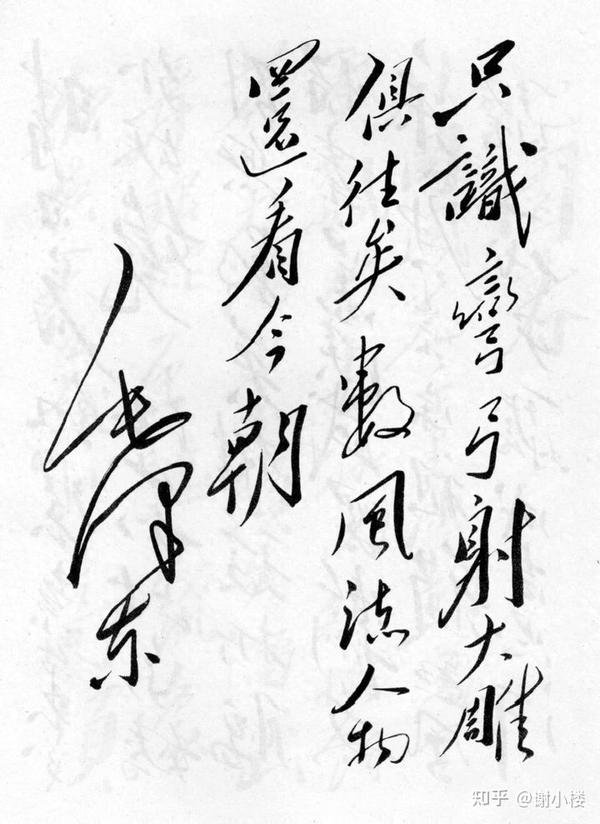 只識彎弓射大雕
俱往矣數風流人物
還看今朝
毛澤東
知乎 @谢小楼